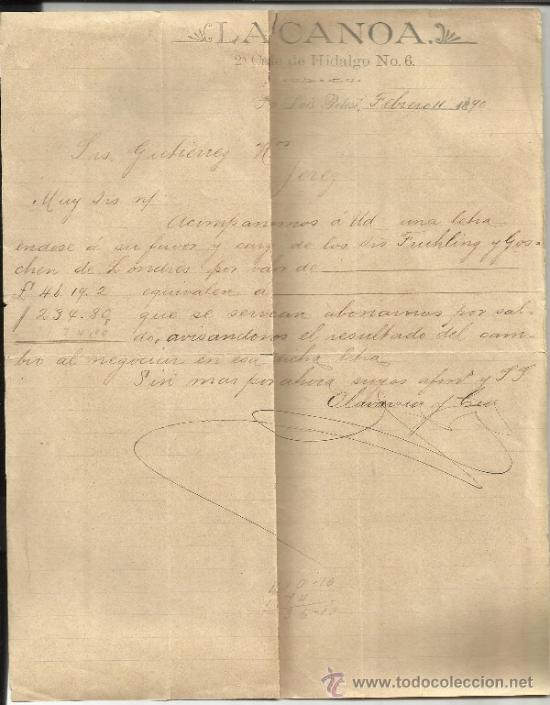 LA CANOA.
2a Calle de Hidalgo No. 6.
Sn Luis Potosí, Febrero 11 1890
Srs. Gutierrez Hos
Jerez
Muy Srs n/
Acompañamos á Ud una letra
endose á su favor y cargo de los Srs Fruhling y Gos-
chen de Londres por valor de
£ 46.19.2 equivalen a
$ 234.80, que se serviran abonarnos por sal-
do, avisandonos el resultado del cam-
bio al negociar en esa dicha letra
Sin mas por ahora suyos afmos y S.S.
www.todocoleccion.net